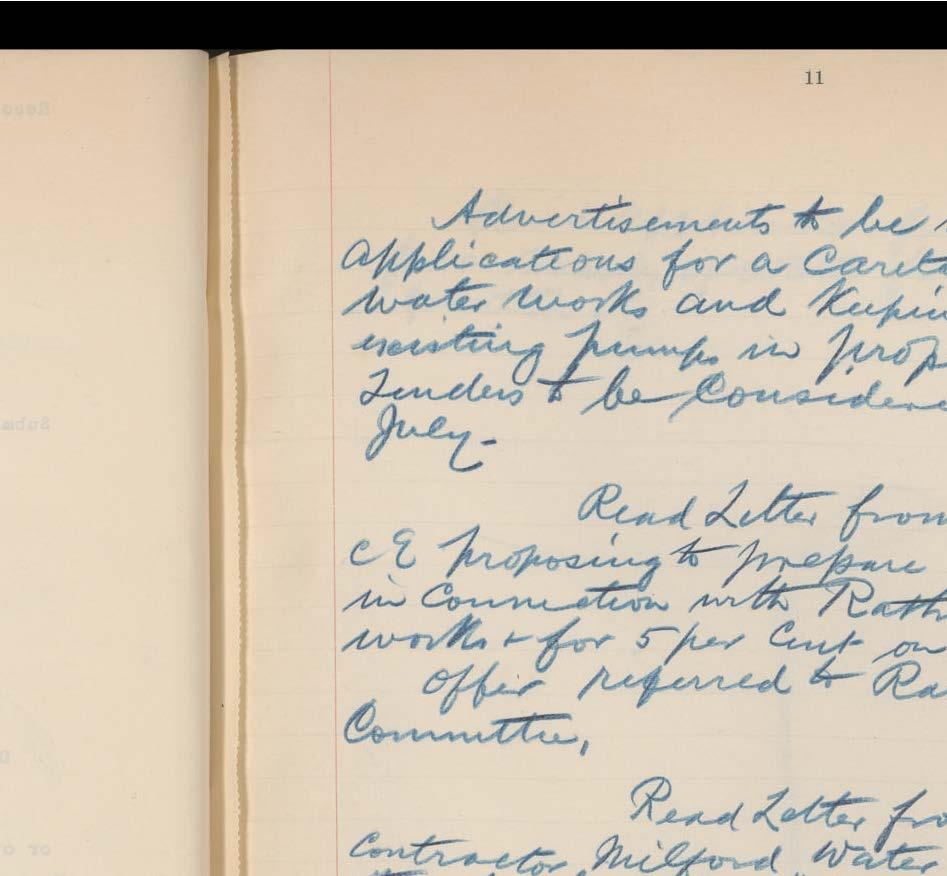 11
Advertisements to be
Applications for a Careta
water works and Keepin
existing pumps in prop
Tenders to be Considere
July -
Read Letter from
C E proposing to prepare
in Connection with Rath
works + for 5 per Cent on
Offer referred to Ra
Committee,
Read Letter fro
Contractor, Milford Water